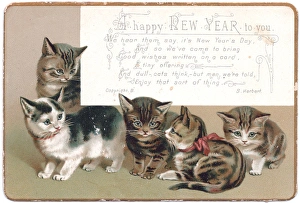 A happy NEW YEAR to you.
We hear them say it's New Year's Day,
And so we've come to bring
Good wishes written on a card,
A tiny offering.
And dull, cats think, but men, we're told,
Enjoy that sort of thing.
Copyright.
S. Herbert.